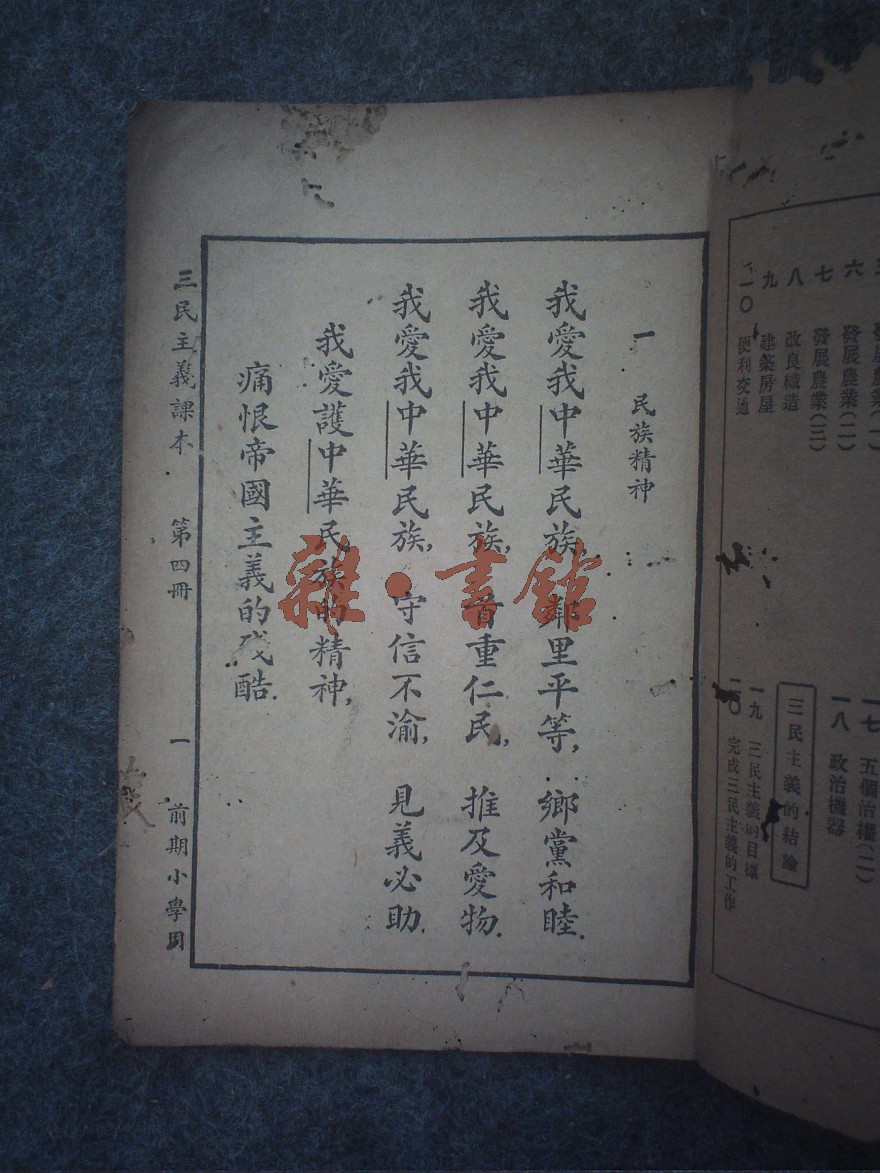 六 發展農業(二)
七 發展農業(三)
八 改良織造
九 建築房屋
一〇 便利交通
一七 五個治權(二)
一八 政治機器
三民主義的結論
一九 三民主義的目標
二〇 完成三民主義的工作
一 民族精神
我愛我中華民族, 鄰里平等, 鄉黨和睦.
我愛我中華民族, 首重仁民, 推及愛物.
我愛我中華民族, 守信不渝, 見義必助.
我愛護中華民族的精神,
痛恨帝國主義的殘酷.
三民主義課本 第四冊 一 前期小學用
雜·書館